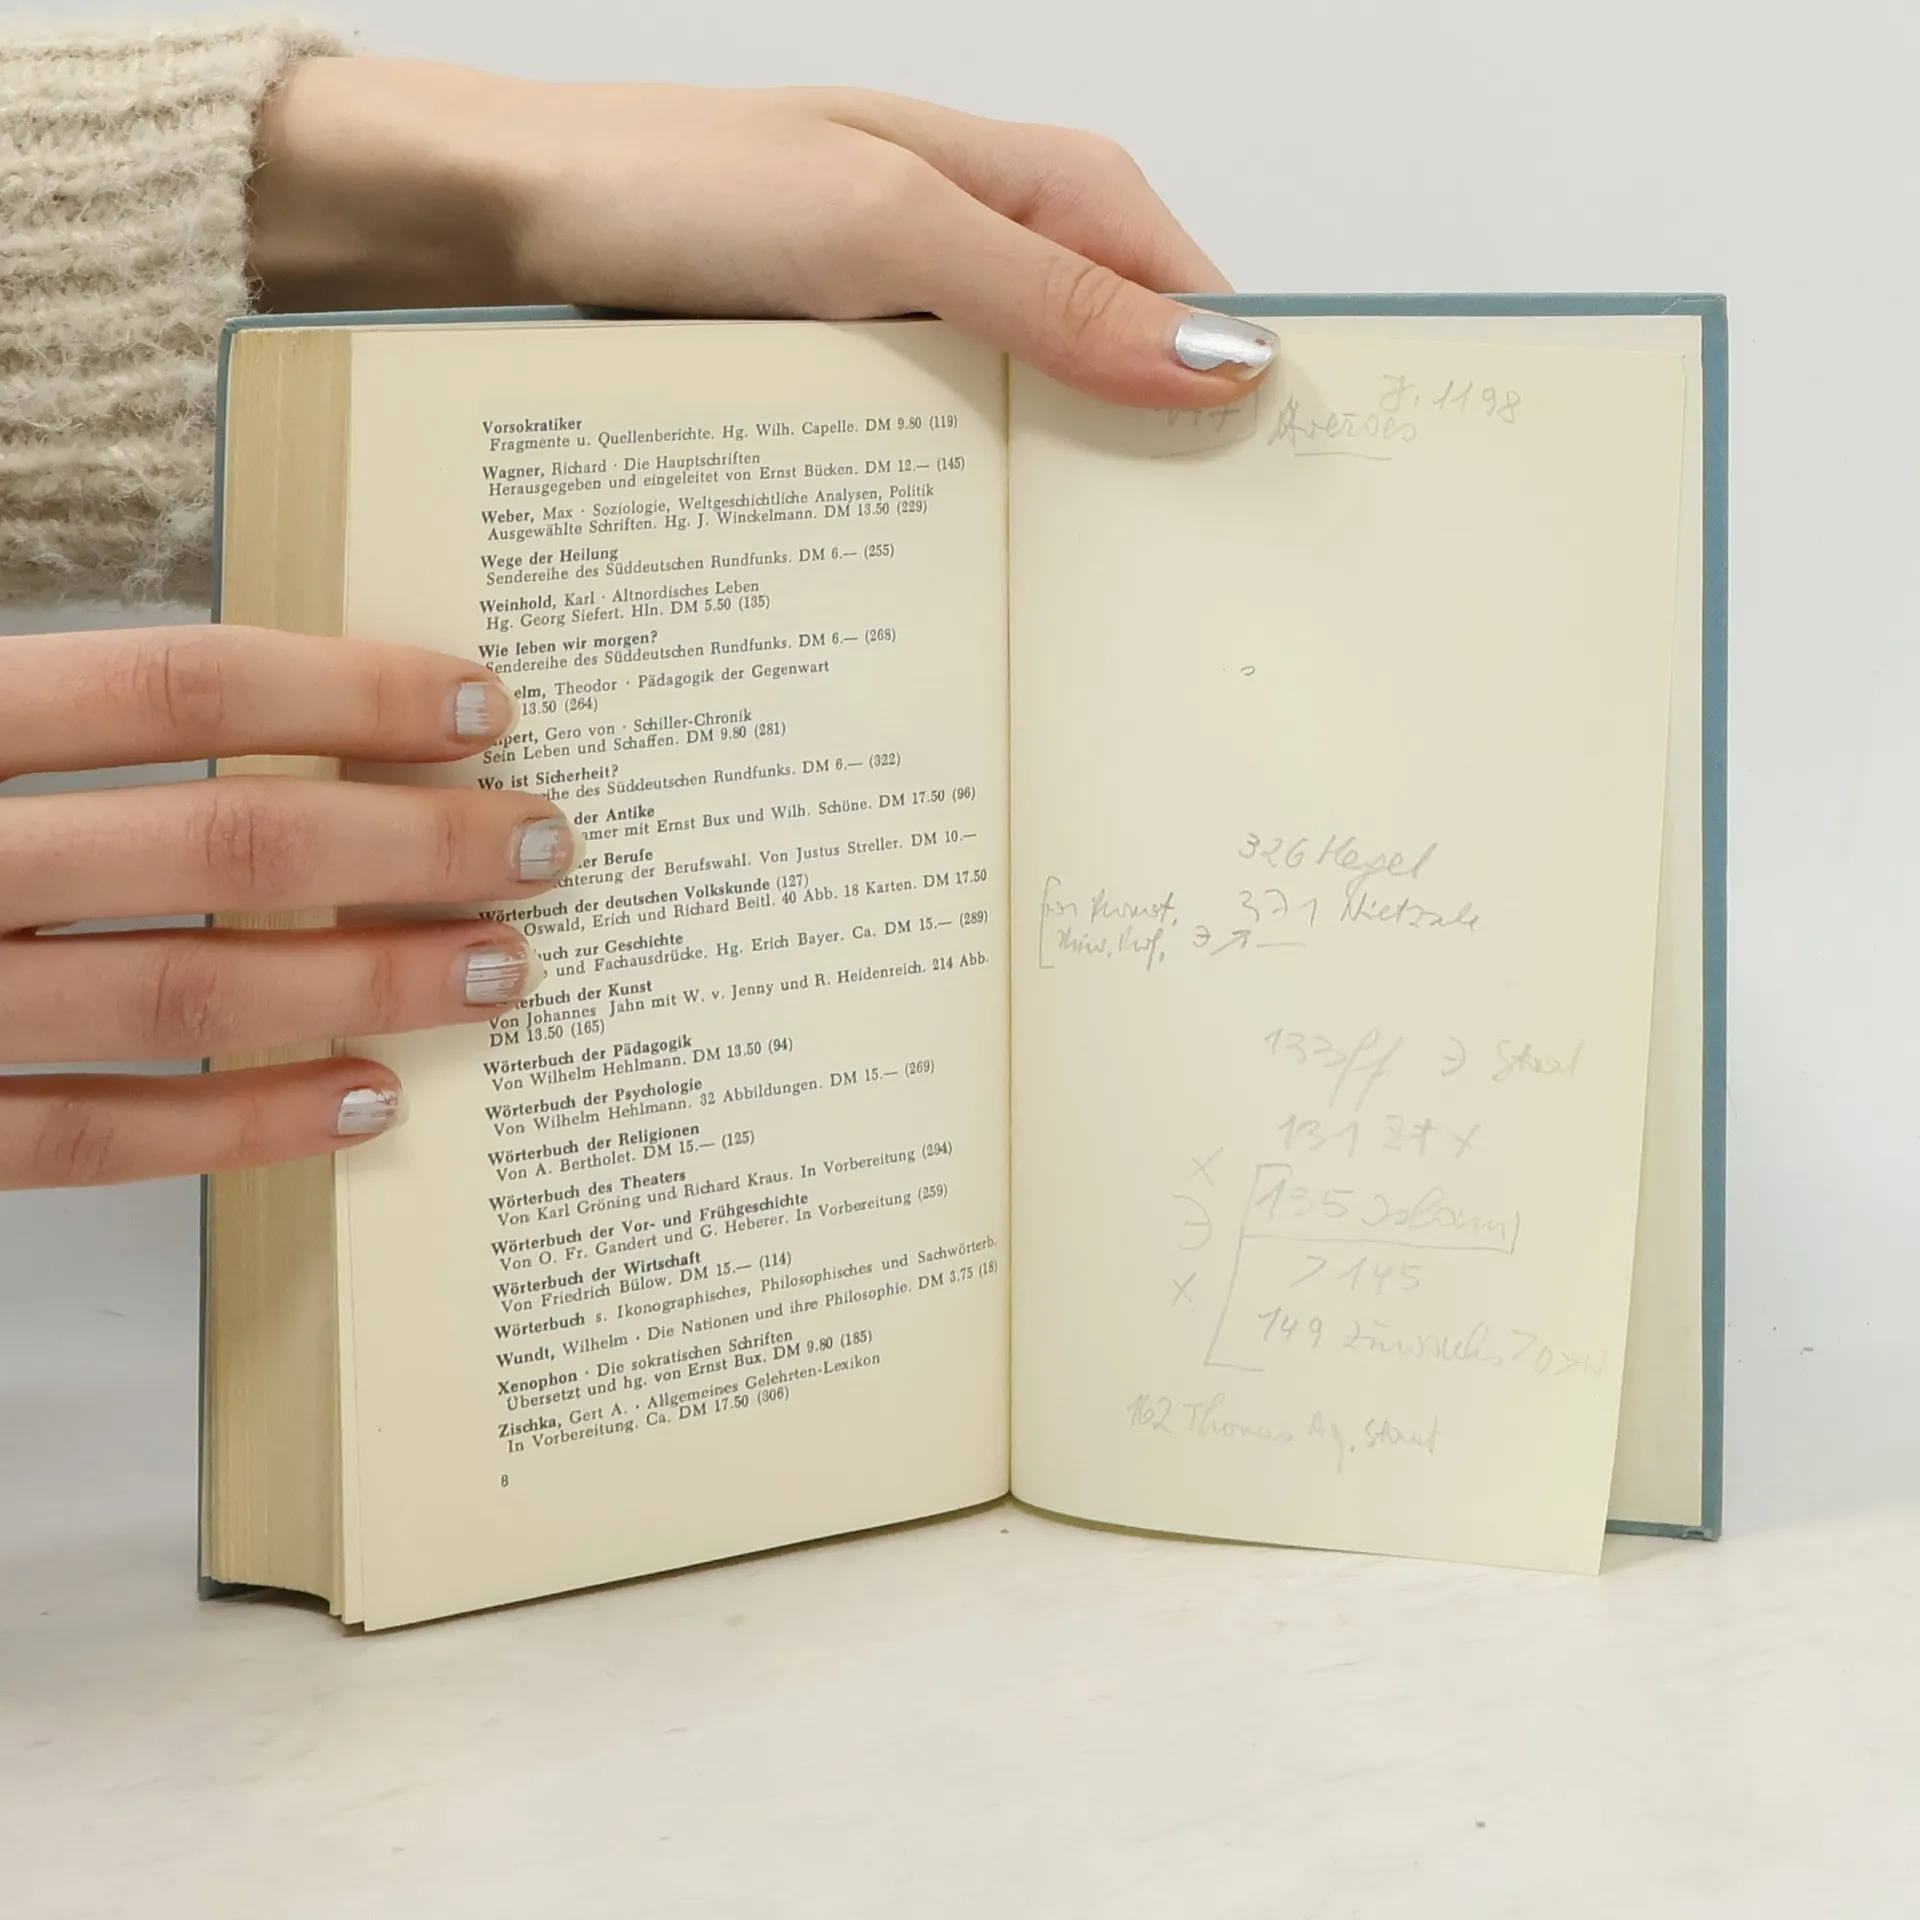 Vorsokratiker
Fragmente u. Quellenberichte. Hg. Wilh. Capelle. DM 9.80 (119)
Wagner, Richard · Die Hauptschriften
Herausgegeben und eingeleitet von Ernst Bücken. DM 12.— (145)
Weber, Max · Soziologie, Weltgeschichtliche Analysen, Politik
Ausgewählte Schriften. Hg. J. Winckelmann. DM 13.50 (229)
Wege der Heilung
Sendereihe des Süddeutschen Rundfunks. DM 6.— (255)
Weinhold, Karl · Altnordisches Leben
Hg. Georg Siefert. Hln. DM 5.50 (135)
Wie leben wir morgen?
Sendereihe des Süddeutschen Rundfunks. DM 6.— (268)
elm, Theodor · Pädagogik der Gegenwart
13.50 (264)
pert, Gero von · Schiller-Chronik
Sein Leben und Schaffen. DM 9.80 (281)
Wo ist Sicherheit?
ihe des Süddeutschen Rundfunks. DM 6.— (322)
der Antike
amer mit Ernst Bux und Wilh. Schöne. DM 17.50 (96)
er Berufe
chterung der Berufswahl. Von Justus Streller. DM 10.—
Wörterbuch der deutschen Volkskunde (127)
Oswald, Erich und Richard Beitl. 40 Abb. 18 Karten. DM 17.50
buch zur Geschichte
und Fachausdrücke. Hg. Erich Bayer. Ca. DM 15.— (289)
terbuch der Kunst
Von Johannes Jahn mit W. v. Jenny und R. Heidenreich. 214 Abb.
DM 13.50 (165)
Wörterbuch der Pädagogik
Von Wilhelm Hehlmann. DM 13.50 (94)
Wörterbuch der Psychologie
Von Wilhelm Hehlmann. 32 Abbildungen. DM 15.— (269)
Wörterbuch der Religionen
Von A. Bertholet. DM 15.— (125)
Wörterbuch des Theaters
Von Karl Gröning und Richard Kraus. In Vorbereitung (294)
Wörterbuch der Vor- und Frühgeschichte
Von O. Fr. Gandert und G. Heberer. In Vorbereitung (259)
Wörterbuch der Wirtschaft
Von Friedrich Bülow. DM 15.— (114)
Wörterbuch s. Ikonographisches, Philosophisches und Sachwörterb.
Wundt, Wilhelm · Die Nationen und ihre Philosophie. DM 3.75 (18)
Xenophon · Die sokratischen Schriften
Übersetzt und hg. von Ernst Bux. DM 9.80 (185)
Zischka, Gert A. · Allgemeines Gelehrten-Lexikon
In Vorbereitung. Ca. DM 17.50 (306)
8
1198
Averroes
326 Hegel
371
133ff
131
135 Islam
> 145
149
162 Thomas Aq. Staat